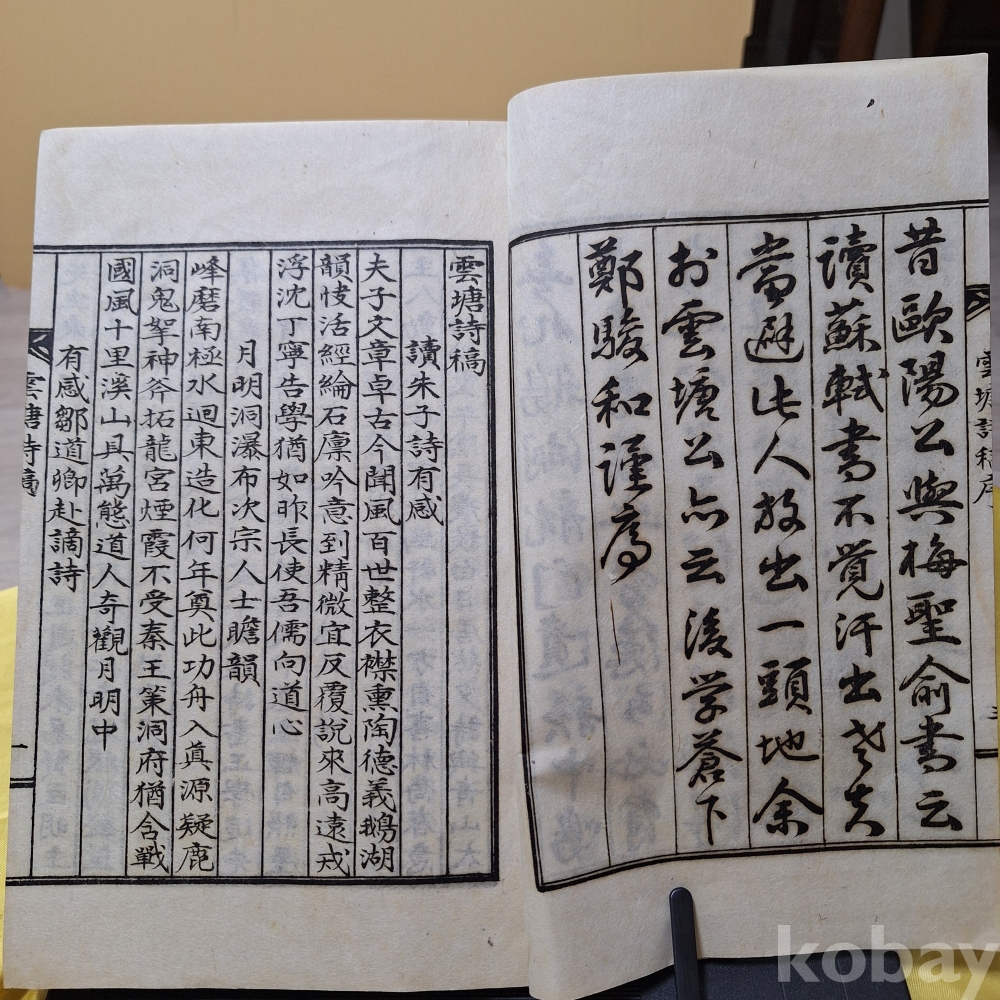 昔歐陽公與梅聖俞書云
讀蘇軾書不覺汗出老夫
當避此人放出一頭地余
於雲塘公亦云後学蒼下
鄭駿和謹序
雲塘詩稿序
雲塘詩稿
讀朱子詩有感
夫子文章卓古今聞風百世整衣襟熏陶德義鵝湖
韻恔活經綸石廩吟意到精微宜反覆說來高遠戒
浮沈丁寧告學猶如昨長使吾儒向道心
月明洞瀑布次宗人士瞻韻
峰磨南極水迴東造化何年奠此功舟入眞源疑鹿
洞鬼挐神斧拓龍宮煙霞不受秦王策洞府猶含戰
國風十里溪山具萬態道人奇觀月明中
有感鄒道鄉赴謫詩
雲塘詩稿
一
kobay